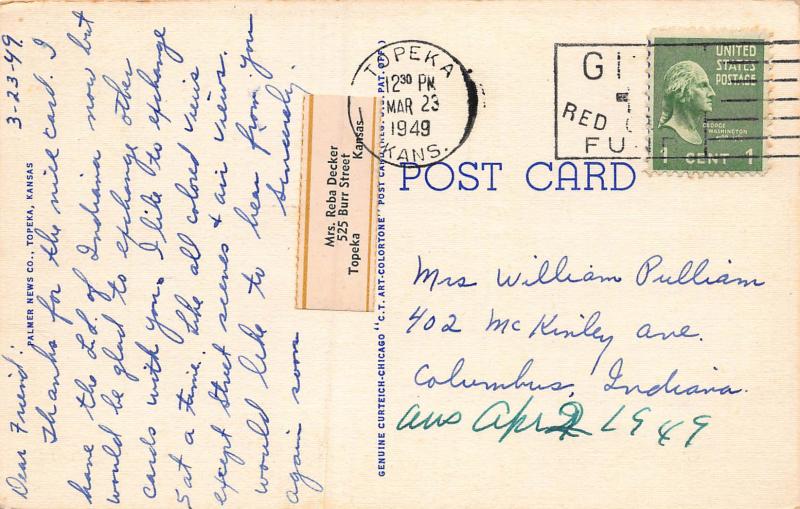 3-23-49
Dear Friend:
Thanks for the nice card. I
have the L.L. of Indiana now but
would be glad to exchange other
cards with you. I like to exchange
5 at a time. Like all colored views
except street scenes & air views.
would like to hear from you
again soon
Sincerely,
PALMER NEWS CO., TOPEKA, KANSAS
Mrs. Reba Decker
525 Burr Street
Topeka Kansas
GENUINE CURTEICH-CHICAGO "C.T. ART-COLORTONE" POST CARD (REG. U.S. PAT. OFF.)
TOPEKA
12 30 PM
MAR 23
1949
KANS.
RED
UNITED
STATES
POSTAGE
GEORGE
WASHINGTON
1 CENT 1
POST CARD
Mrs William Pulliam
402 McKinley ave.
Columbus, Indiana.
ans Apr 2 1949